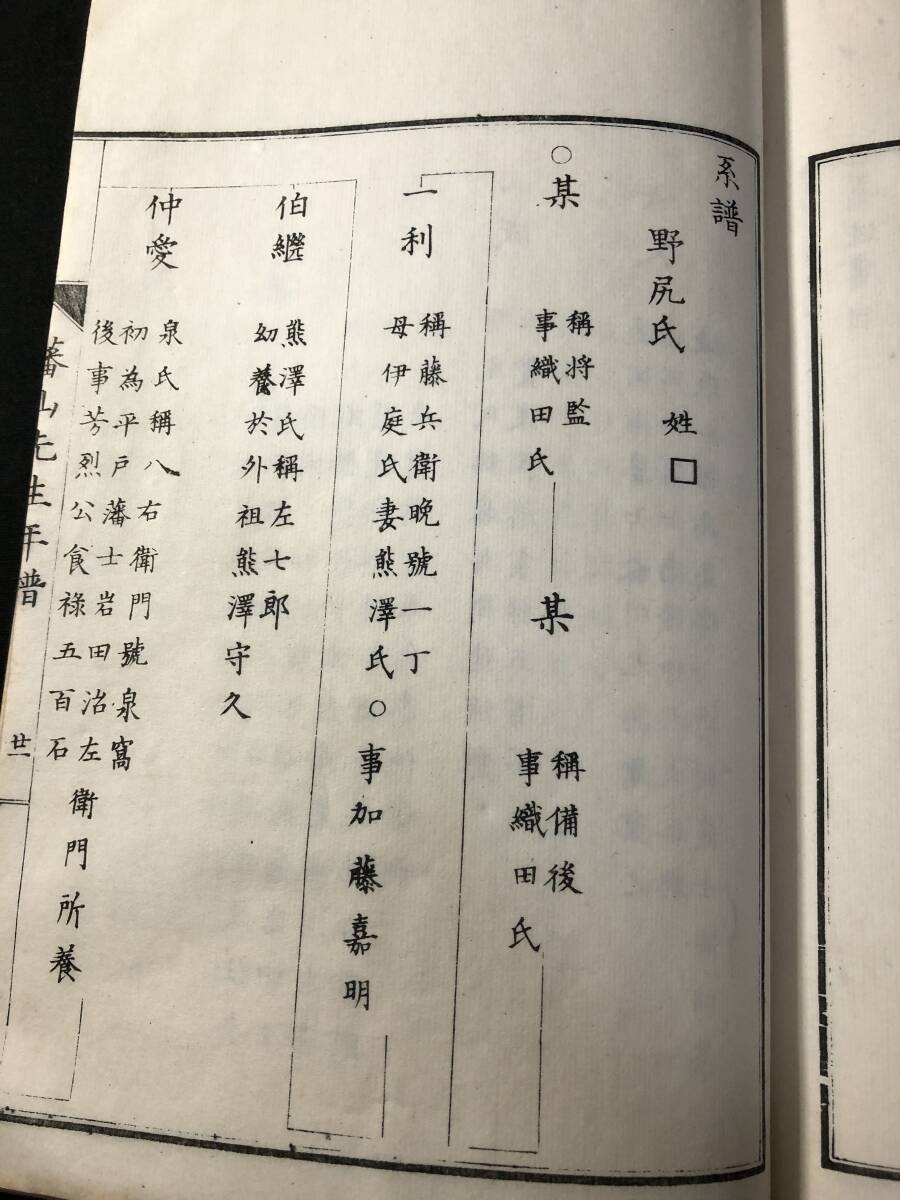 系譜
野尻氏 姓□
○某
稱將監
事織田氏
某
稱備後
事織田氏
一利
稱藤兵衛晩號一丁
母伊庭氏妻熊澤氏○事加藤嘉明
伯繼
熊澤氏稱左七郎
幼養於外祖熊澤守久
仲愛
泉氏稱八右衛門號泉窩
初為平戶藩士岩田治左衛門所養
後事芳烈公食祿五百石
蕃山先生年譜
廿一